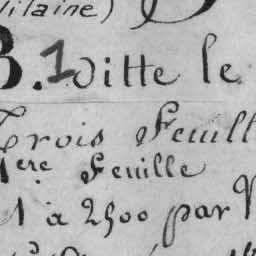 Vilaine)
B. 1 ditte le
Trois Feuill
1ere Feuille
1 à 2500 par